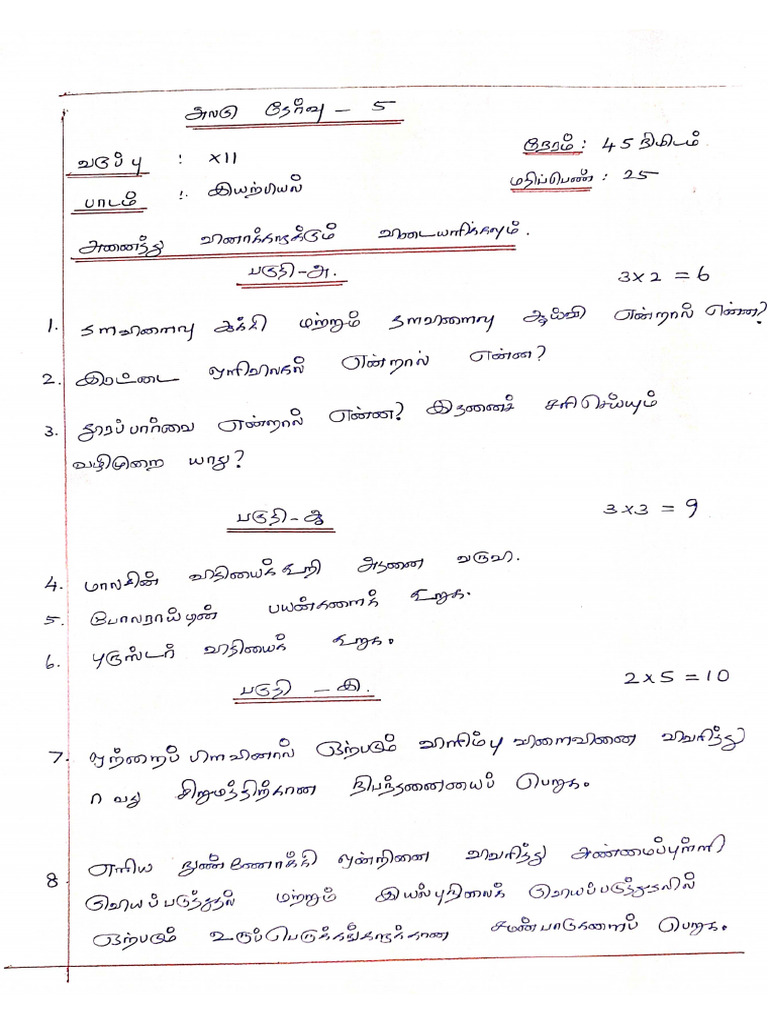 அலகு தேர்வு - 5
வகுப்பு : XII
நேரம் : 45 நிமிடம்
பாடம் : இயற்பியல்
மதிப்பெண் : 25
அனைத்து வினாக்களுக்கும் விடையளிக்கவும்.
பகுதி-அ. 3x2 = 6
1. தளவிளைவு ஆக்கி மற்றும் தளவிளைவு ஆய்வி என்றால் என்ன?
2. இரட்டை ஒளிவிலகல் என்றால் என்ன?
3. தூரப்பார்வை என்றால் என்ன? இதனைச் சரிசெய்யும்
வழிமுறை யாது?
பகுதி-ஆ 3x3 = 9
4. மாலசின் விதியைக் கூறி அதனை வருவி.
5. போலராய்டின் பயன்களைக் கூறுக.
6. புருஸ்டர் விதியைக் கூறுக.
பகுதி - இ. 2x5 = 10
7. ஒற்றைப் பிளவினால் ஏற்படும் விளிம்பு விளைவினை விவரித்து
n வது சிறுமத்திற்கான நிபந்தனையைப் பெறுக.
8. எளிய நுண்ணோக்கி ஒன்றினை விவரித்து அண்மைப்புள்ளி
குவியப்படுத்துதல் மற்றும் இயல்புநிலைக் குவியப்படுத்துதலில்
ஏற்படும் உருப்பெருக்கங்களுக்கான சமன்பாடுகளைப் பெறுக.